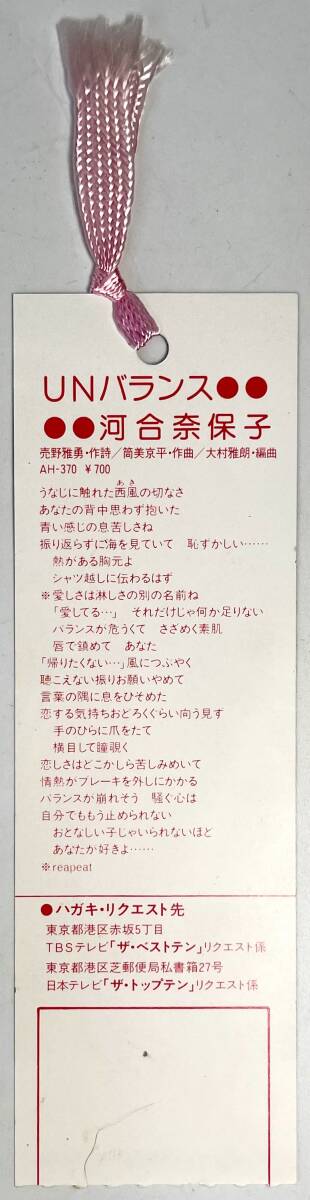 UNバランス●●
●●河合奈保子
売野雅勇・作詩／筒美京平・作曲／大村雅朗・編曲
AH-370 ¥700
あき
うなじに触れた西風の切なさ
あなたの背中思わず抱いた
青い感じの息苦しさね
振り返らずに海を見ていて 恥ずかしい……
熱がある胸元よ
シャツ越しに伝わるはず
※愛しさは淋しさの別の名前ね
「愛してる…」 それだけじゃ何か足りない
バランスが危うくて さざめく素肌
唇で鎮めて あなた
「帰りたくない…」風につぶやく
聴こえない振りお願いやめて
言葉の隅に息をひそめた
恋する気持ちおどろくぐらい向う見ず
手のひらに爪をたて
横目して瞳覗く
恋しさはどこかしら苦しみめいて
情熱がブレーキを外しにかかる
バランスが崩れそう 騒ぐ心は
自分でももう止められない
おとなしい子じゃいられないほど
あなたが好きよ……
※reapeat
●ハガキ・リクエスト先
東京都港区赤坂5丁目
TBSテレビ「ザ・ベストテン」リクエスト係
東京都港区芝郵便局私書箱27号
日本テレビ「ザ・トップテン」リクエスト係